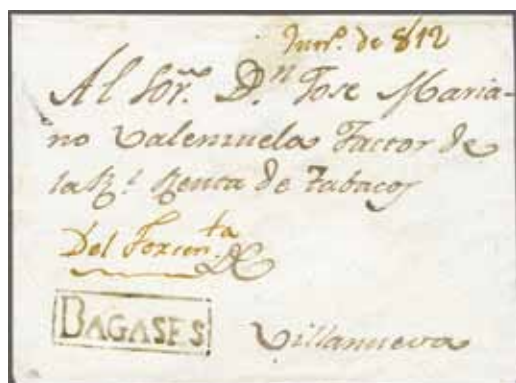 Junº. de 812
Al Sor. Dn Jose Maria-
no Valenzuela Factor de
la Rl. Renta de Tabacos
Del
De
BAGASES
Villanueva